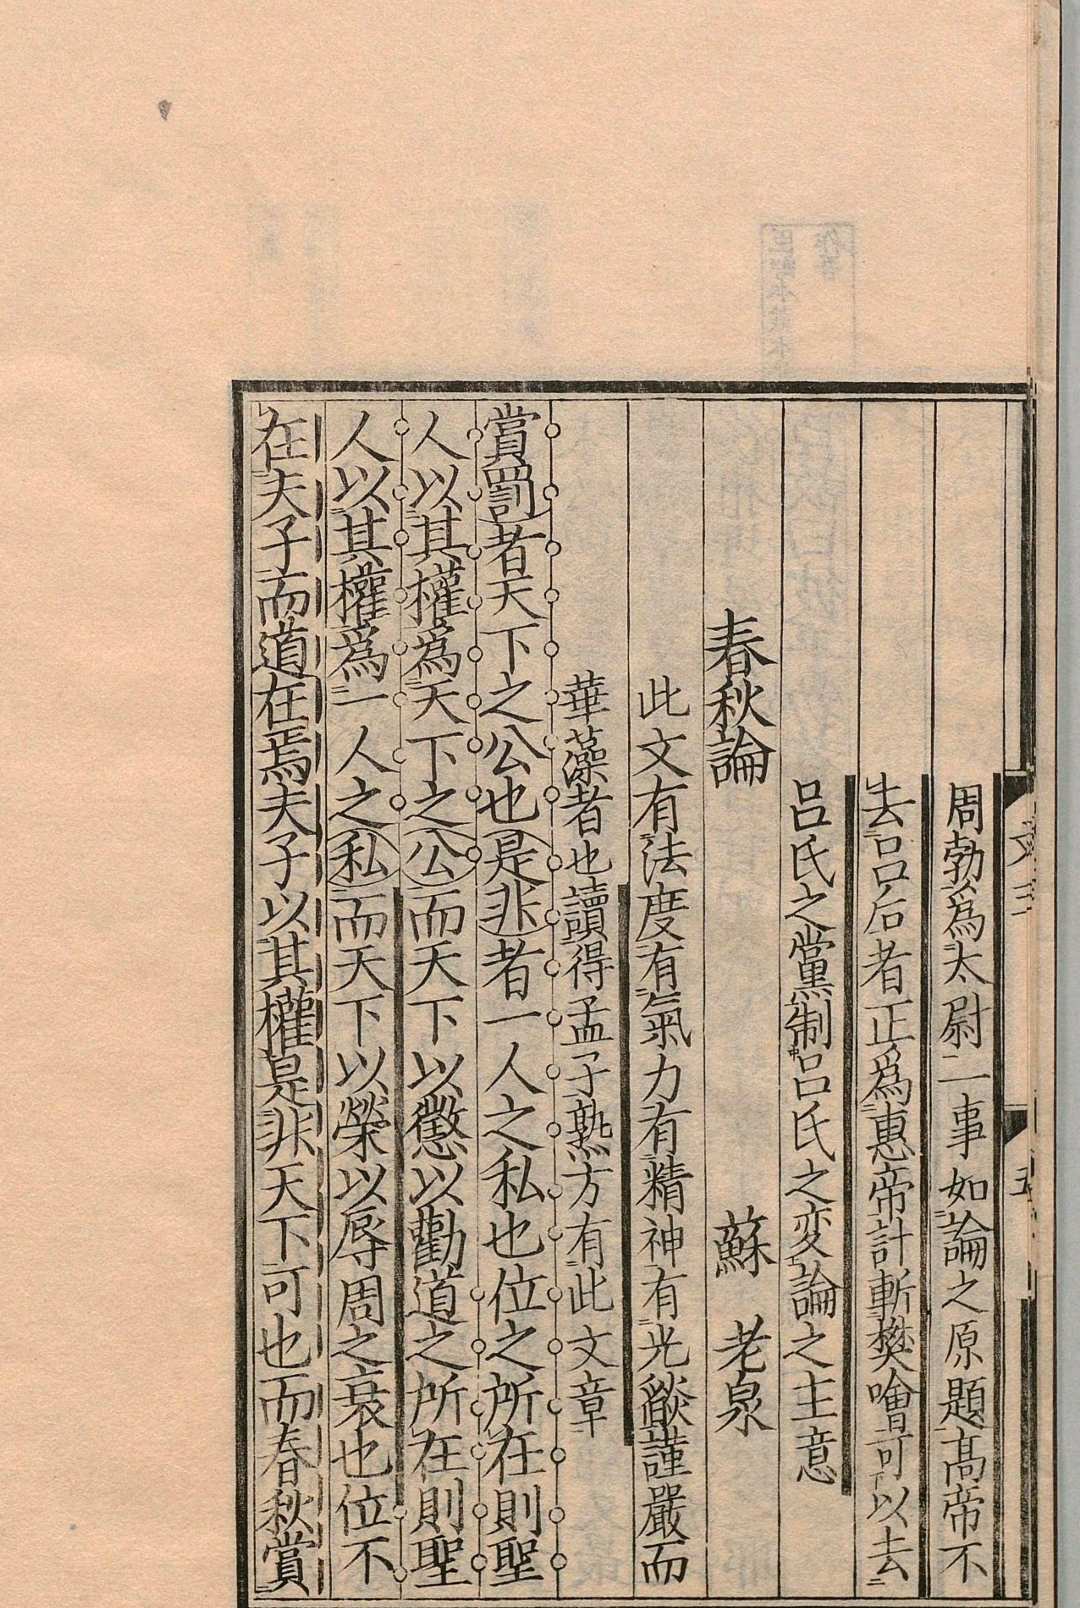 文三
五
周勃爲太尉二事如論之原題髙帝不
去吕后者正爲惠帝計斬樊噲可以去
吕氏之黨制吕氏之変論之主意
春秋論
蘇老泉
此文有法度有氣力有精神有光燄謹嚴而
華藻者也讀得孟子熟方有此文章
賞罰者天下之公也是非者一人之私也位之所在則聖
人以其權爲天下之公而天下以懲以勸道之所在則聖
人以其權爲一人之私而天下以榮以辱周之衰也位不
在夫子而道在焉夫子以其權是非天下可也而春秋賞